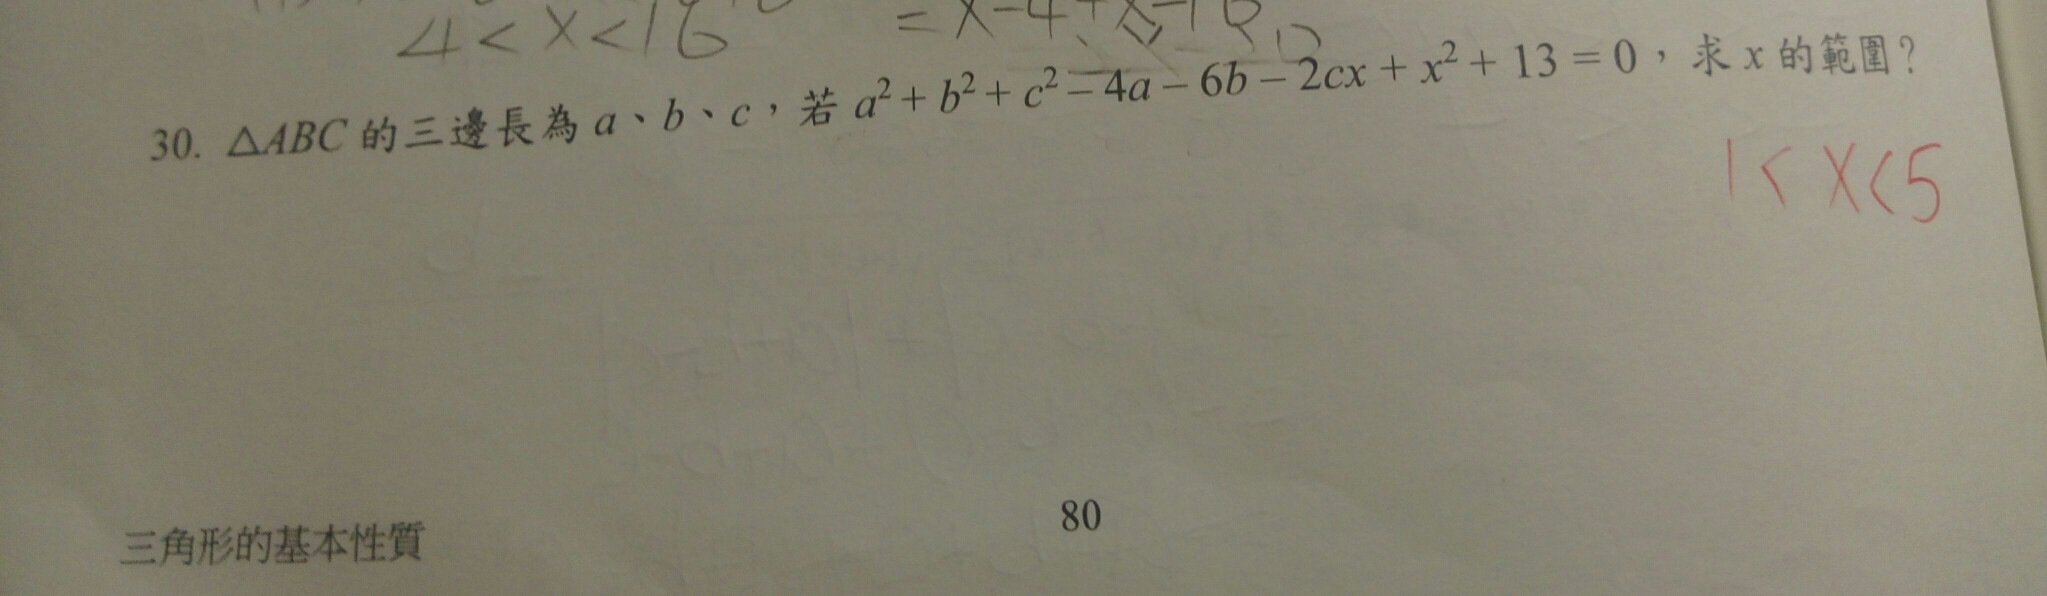 4 < x < 16
= x - 4 + x - 16
30. △ABC 的三邊長為 a、b、c，若 a² + b² + c² − 4a − 6b − 2cx + x² + 13 = 0，求 x 的範圍？
1 < x < 5
三角形的基本性質
80